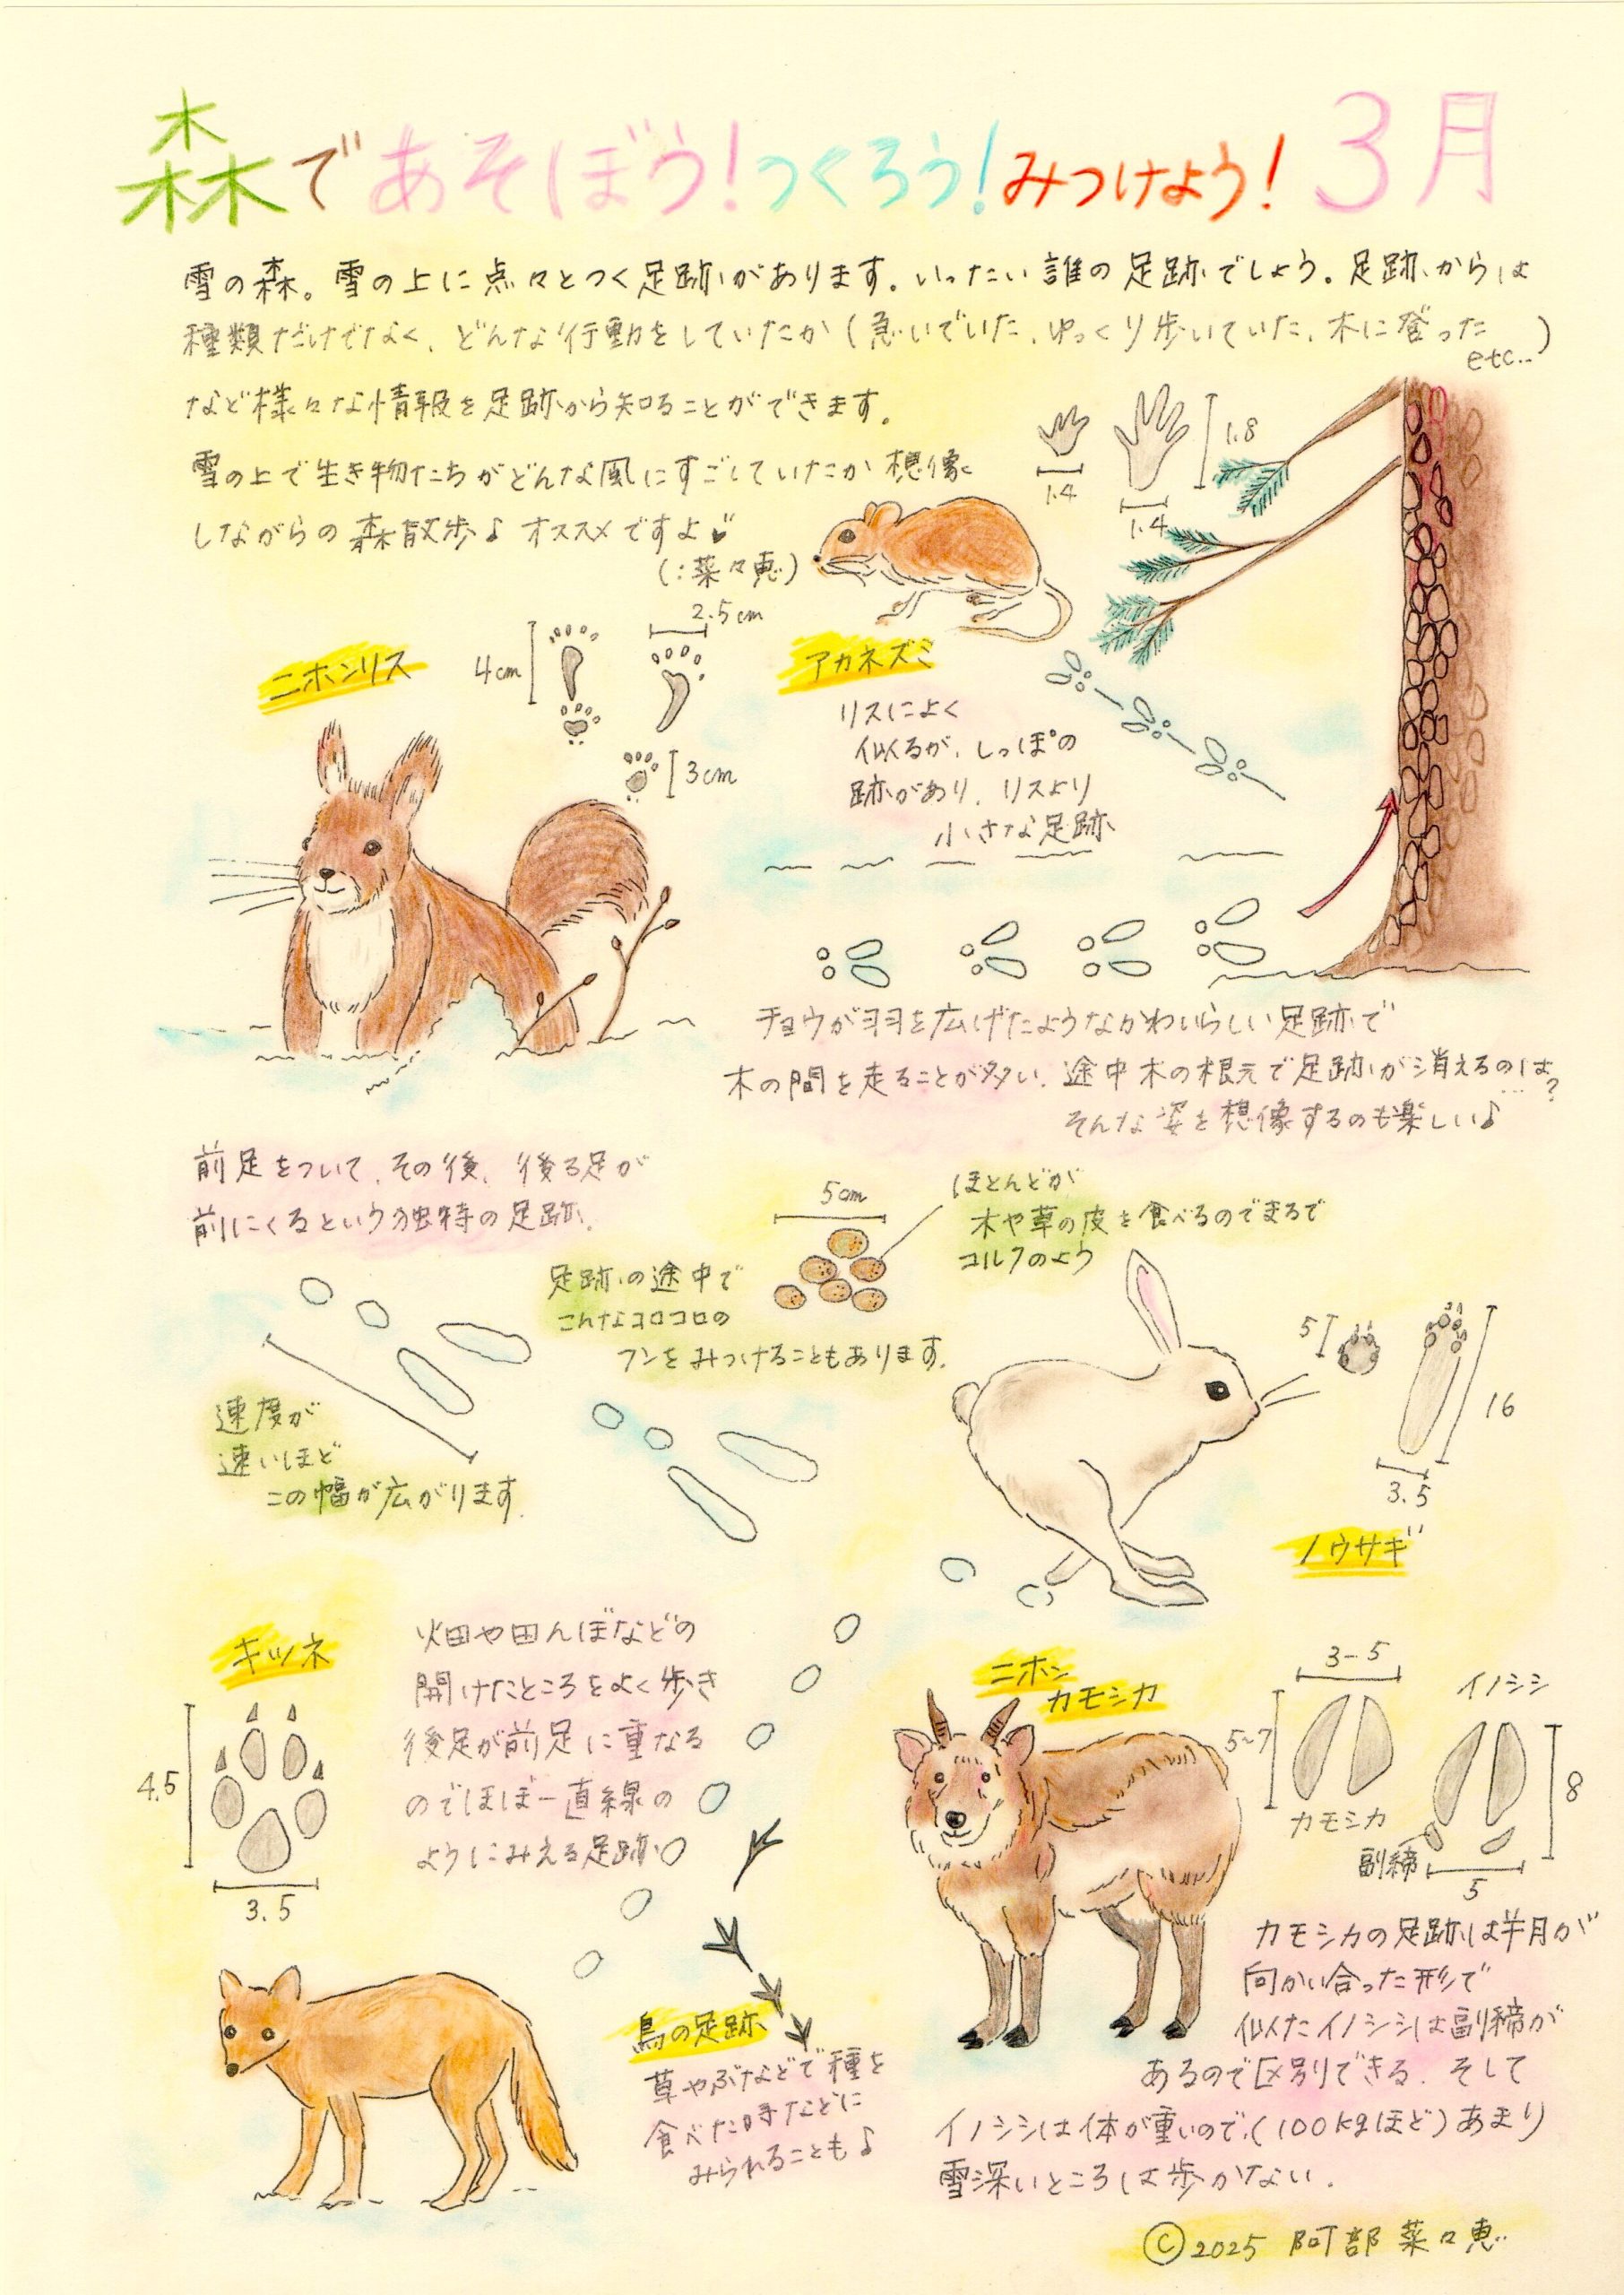 森であそぼう!つくろう!みつけよう! 3月
雪の森。雪の上に点々とつく足跡があります。いったい誰の足跡でしょう。足跡からは
種類だけでなく、どんな行動をしていたか(急いでいた、ゆっくり歩いていた、木に登った etc..)
など様々な情報を足跡から知ることができます。
雪の上で生き物たちがどんな風にすごしていたか想像
しながらの森散歩♪オススメですよ
(:菜々恵)
1.4
1.4
1.8
ニホンリス
4cm
2.5cm
3cm
アカネズミ
リスによく
似るが、しっぽの
跡があり、リスより
小さな足跡
チョウが羽を広げたようなかわいらしい足跡で
木の間を走ることが多い。途中木の根元で足跡が消えるのは…?
そんな姿を想像するのも楽しい♪
前足をついて、その後、後ろ足が
前にくるという独特の足跡。
足跡の途中で
こんなコロコロの
フンをみつけることもあります。
5cm
ほとんどが
木や草の皮を食べるのでまるで
コルクのよう
速度が
速いほど
この幅が広がります。
5
16
3.5
ノウサギ
キツネ
4.5
3.5
畑や田んぼなどの
開けたところをよく歩き
後足が前足に重なる
のでほぼ一直線の
ようにみえる足跡
鳥の足跡
草やぶなどで種を
食べた時などに
みられることも♪
ニホン
カモシカ
3-5
5~7
カモシカ
イノシシ
8
副締
5
カモシカの足跡は半月が
向かい合った形で
似たイノシシは副締が
あるので区別できる。そして
イノシシは体が重いので、(100kgほど)あまり
雪深いところは歩かない。
©2025 阿部菜々恵